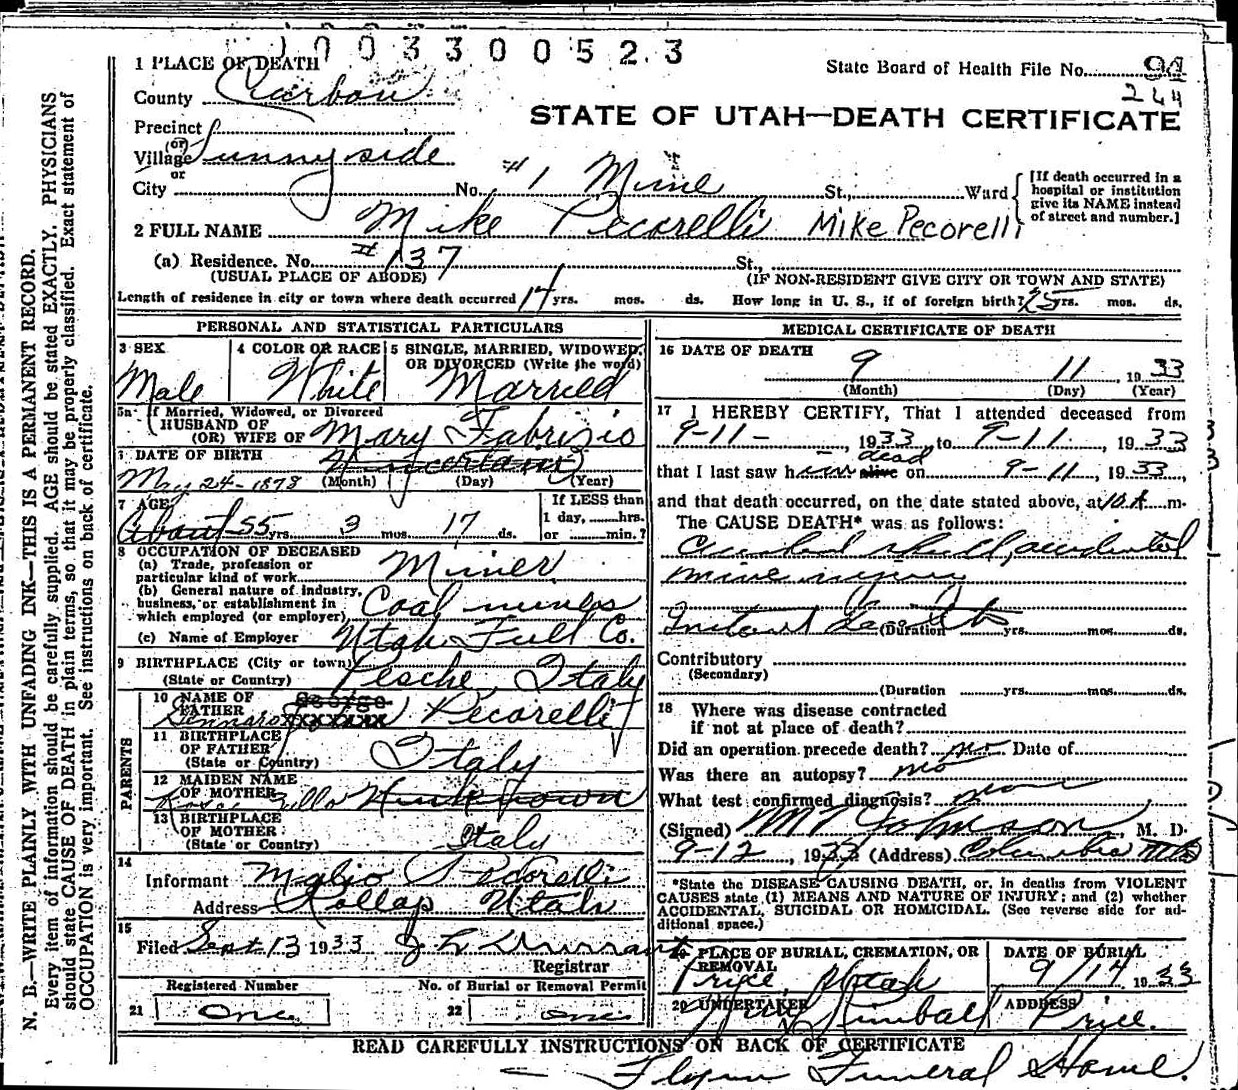 1003300523
1 PLACE OF DEATH
State Board of Health File No. 94
264
County Carbon
STATE OF UTAH—DEATH CERTIFICATE
Precinct
(or)
Village Sunnyside
or
City No. #1 Mine St., Ward
[If death occurred in a
hospital or institution
give its NAME instead
of street and number.]
2 FULL NAME Mike Pecorelli Mike Pecorelli
(a) Residence. No. #137 St.,
(USUAL PLACE OF ABODE) (IF NON-RESIDENT GIVE CITY OR TOWN AND STATE)
Length of residence in city or town where death occurred 14 yrs. mos. ds. How long in U. S., if of foreign birth? 25 yrs. mos. ds.
PERSONAL AND STATISTICAL PARTICULARS
3 SEX
Male
4 COLOR OR RACE
White
5 SINGLE, MARRIED, WIDOWED,
OR DIVORCED (Write the word)
Married
5a If Married, Widowed, or Divorced
HUSBAND OF
(OR) WIFE OF Mary Fabrizio
DATE OF BIRTH Uncertain
May 24-1878 (Month) (Day) (Year)
7 AGE
About 55 yrs. 3 mos. 17 ds.
If LESS than
1 day, hrs.
or min.?
8 OCCUPATION OF DECEASED
(a) Trade, profession or
particular kind of work Miner
(b) General nature of industry,
business, or establishment in
which employed (or employer) Coal mines
(c) Name of Employer Utah Fuel Co.
9 BIRTHPLACE (City or town)
(State or Country) Pesche, Italy
PARENTS
10 NAME OF
FATHER George
Gennaro XXXXXXX Pecorelli
11 BIRTHPLACE
OF FATHER
(State or Country) Italy
12 MAIDEN NAME
OF MOTHER
Unknown
13 BIRTHPLACE
OF MOTHER
(State or Country) Italy
14
Informant Pecorelli
Address Utah
15
Filed Sept 13 1933 J L
Registrar
Registered Number No. of Burial or Removal Permit
21 One 22 one
MEDICAL CERTIFICATE OF DEATH
16 DATE OF DEATH
9 11, 1933
(Month) (Day) (Year)
17 I HEREBY CERTIFY, That I attended deceased from
9-11-, 1933, to 9-11-, 1933
dead
that I last saw him alive on 9-11, 1933,
and that death occurred, on the date stated above, at 10 A m.
The CAUSE DEATH* was as follows:
Crushed skull, accidental
mine injury
Instant death
(Duration yrs. mos. ds.
Contributory
(Secondary)
(Duration yrs. mos. ds.
18 Where was disease contracted
if not at place of death?
Did an operation precede death? no Date of
Was there an autopsy? no
What test confirmed diagnosis? none
(Signed) Johnson, M. D.
9-12, 1933 (Address) Columbia Utah
*State the DISEASE CAUSING DEATH, or, in deaths from VIOLENT
CAUSES state (1) MEANS AND NATURE OF INJURY; and (2) whether
ACCIDENTAL, SUICIDAL OR HOMICIDAL. (See reverse side for ad-
ditional space.)
PLACE OF BURIAL, CREMATION, OR
REMOVAL
Price, Utah
DATE OF BURIAL
9/14 1933
20 UNDERTAKER
Kimball
ADDRESS
Price.
READ CAREFULLY INSTRUCTIONS ON BACK OF CERTIFICATE
Flynn Funeral Home.
N. B.—WRITE PLAINLY WITH UNFADING INK—THIS IS A PERMANENT RECORD.
Every item of information should be carefully supplied. AGE should be stated EXACTLY. PHYSICIANS
should state CAUSE OF DEATH in plain terms, so that it may be properly classified. Exact statement of
OCCUPATION is very important. See instructions on back of certificate.